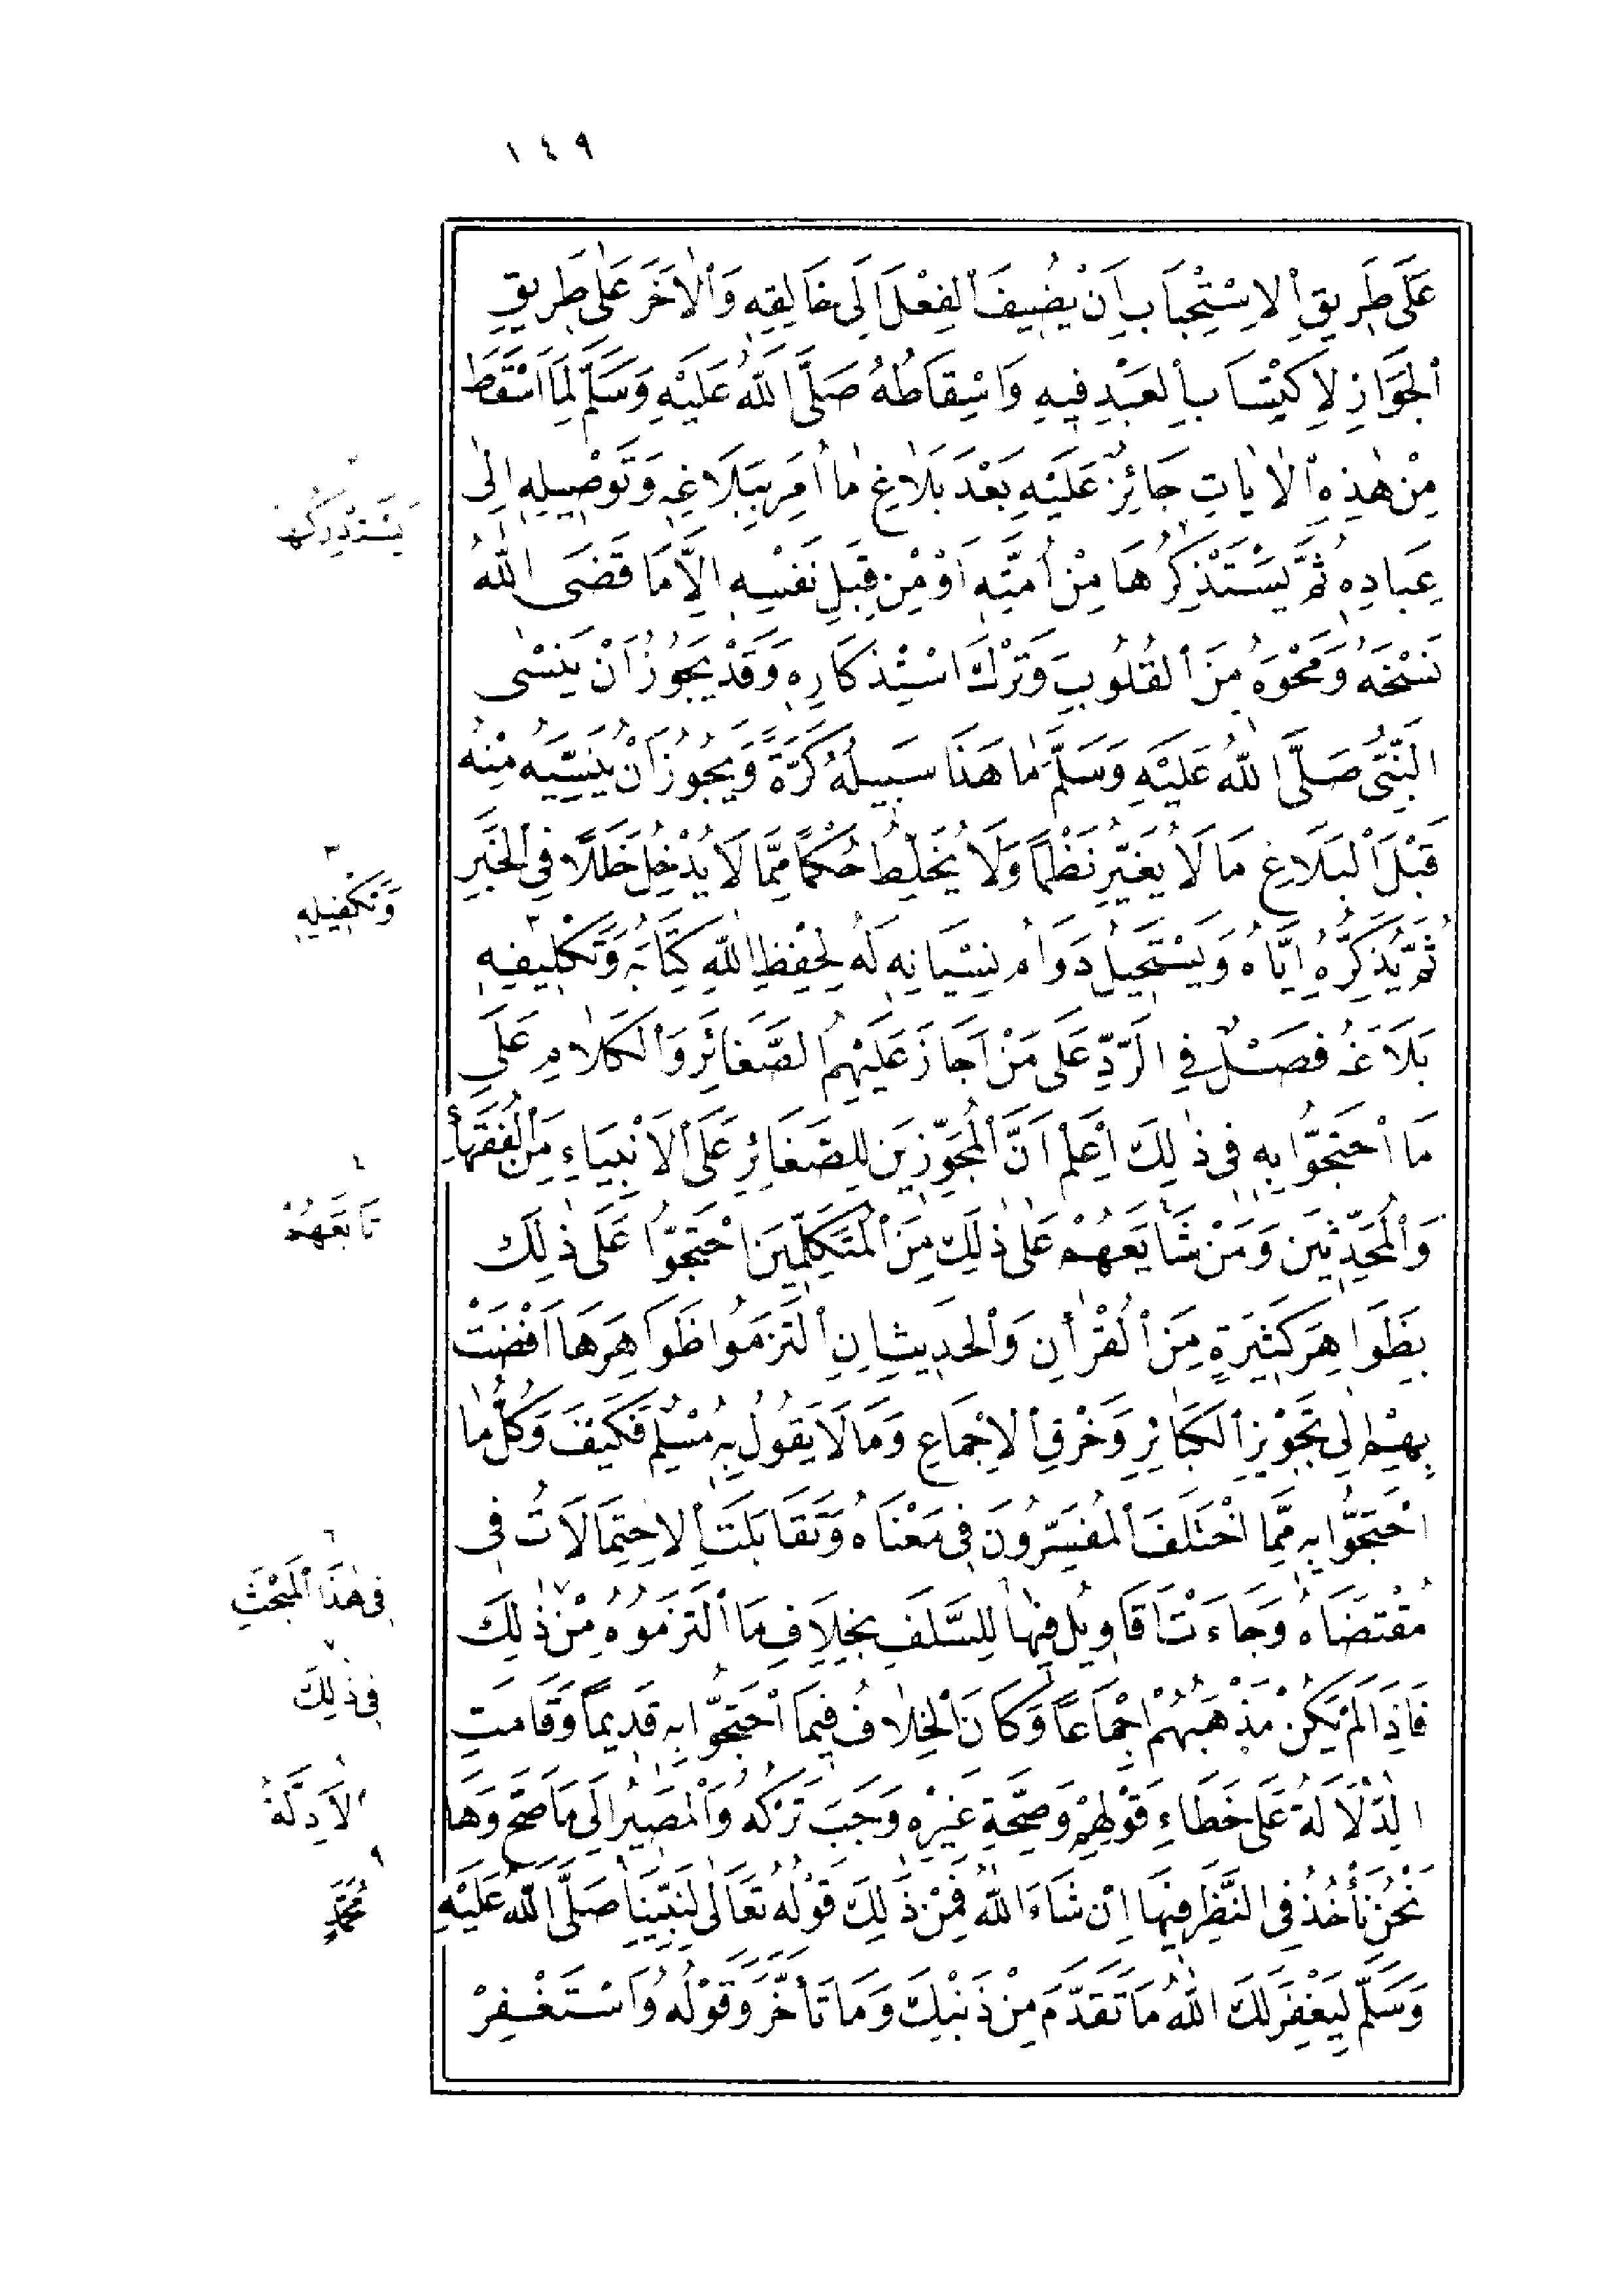 ١٤٩
عَلَى طَرِيقِ الْاِسْتِحْبَابِ اَنْ يُضِيفَ الْفِعْلَ اِلَى خَالِقِهِ وَالْاٰخَرَ عَلٰى طَرِيقِ
الْجَوَازِ لِاكْتِسَابِ الْعَبْدِ فِيهِ وَاِسْقَاطُهُ صَلَّى اللّٰهُ عَلَيْهِ وَسَلَّمَ لِمَا اَسْقَطَ
مِنْ هٰذِهِ الْاٰيَاتِ جَائِزٌ عَلَيْهِ بَعْدَ بَلَاغِ مَا اُمِرَ بِبَلَاغِهِ وَتَوْصِيلِهِ اِلٰى
عِبَادِهِ ثُمَّ يَسْتَذْكِرُهَا مِنْ اُمَّتِهِ اَوْ مِنْ قِبَلِ نَفْسِهِ اِلَّا مَا قَضَى اللّٰهُ
نَسْخَهُ وَمَحْوَهُ مِنَ الْقُلُوبِ وَتَرْكَ اسْتِذْكَارِهِ وَقَدْ يَجُوزُ اَنْ يَنْسٰى
النَّبِىُّ صَلَّى اللّٰهُ عَلَيْهِ وَسَلَّمَ مَا هَذَا سَبِيلُهُ كَرَّةً وَيَجُوزُ اَنْ يُنَسِّيَهُ مِنْهُ
قَبْلَ الْبَلَاغِ مَا لَا يُغَيِّرُ نَظْمًا وَلَا يُخَلِّطُ حُكْمًا مِمَّا لَا يُدْخِلُ خَلَلًا فِى الْخَبَرِ
ثُمَّ يُذَكِّرُهُ اِيَّاهُ وَيَسْتَحِيلُ دَوَامُ نِسْيَانِهِ لَهُ لِحِفْظِ اللّٰهِ كِتَابَهُ وَتَكْلِيفِهِ
بَلَاغَهُ فَصْلٌ فِى الرَّدِّ عَلَى مَنْ اَجَازَ عَلَيْهِمُ الصَّغَائِرَ وَالْكَلَامِ عَلَى
مَا احْتَجُّوا بِهِ فِى ذٰلِكَ اِعْلَمْ اَنَّ الْمُجَوِّزِينَ لِلصَّغَائِرِ عَلَى الْاَنْبِيَاءِ مِنَ الْفُقَهَاءِ
وَالْمُحَدِّثِينَ وَمَنْ شَايَعَهُمْ عَلٰى ذٰلِكَ مِنَ الْمُتَكَلِّمِينَ احْتَجُّوا عَلَى ذٰلِكَ
بِظَوَاهِرَ كَثِيرَةٍ مِنَ الْقُرْاٰنِ وَالْحَدِيثِ اِنِ الْتَزَمُوا ظَوَاهِرَهَا اَفْضَتْ
بِهِمْ اِلٰى تَجْوِيزِ الْكَبَائِرِ وَخَرْقِ الْاِجْمَاعِ وَمَا لَا يَقُولُ بِهِ مُسْلِمٌ فَكَيْفَ وَكُلُّ مَا
احْتَجُّوا بِهِ مِمَّا اخْتَلَفَ الْمُفَسِّرُونَ فِى مَعْنَاهُ وَتَقَابَلَتِ الْاِحْتِمَالَاتُ فِى
مُقْتَضَاهُ وَجَاءَتْ اَقَاوِيلُ فِيهَا لِلسَّلَفِ بِخِلَافِ مَا الْتَزَمُوهُ مِنْ ذٰلِكَ
فَاِذَا لَمْ يَكُنْ مَذْهَبُهُمْ اِجْمَاعًا وَكَانَ الْخِلَافُ فِيمَا احْتَجُّوا بِهِ قَدِيمًا وَقَامَتِ
الدَّلَالَةُ عَلَى خَطَاءِ قَوْلِهِمْ وَصِحَّةِ غَيْرِهِ وَجَبَ تَرْكُهُ وَالْمَصِيرُ اِلَى مَا صَحَّ وَهَا
نَحْنُ نَأْخُذُ فِى النَّظَرِ فِيهَا اِنْ شَاءَ اللّٰهُ فَمِنْ ذٰلِكَ قَوْلُهُ تَعَالٰى لِنَبِيِّنَا صَلَّى اللّٰهُ عَلَيْهِ
وَسَلَّمَ لِيَغْفِرَ لَكَ اللّٰهُ مَا تَقَدَّمَ مِنْ ذَنْبِكَ وَمَا تَأَخَّرَ وَقَوْلُهُ وَاسْتَغْفِرْ
٢
يَسْتَدْرِكُهَا
٣
وَتَكْفِيلِهِ
٤
تَابَعَهُمْ
٦
فِى هٰذَا الْمَبْحَثِ
٧
فِى ذٰلِكَ
٨
الْاَدِلَّةُ
٩
مُحَمَّدٍ